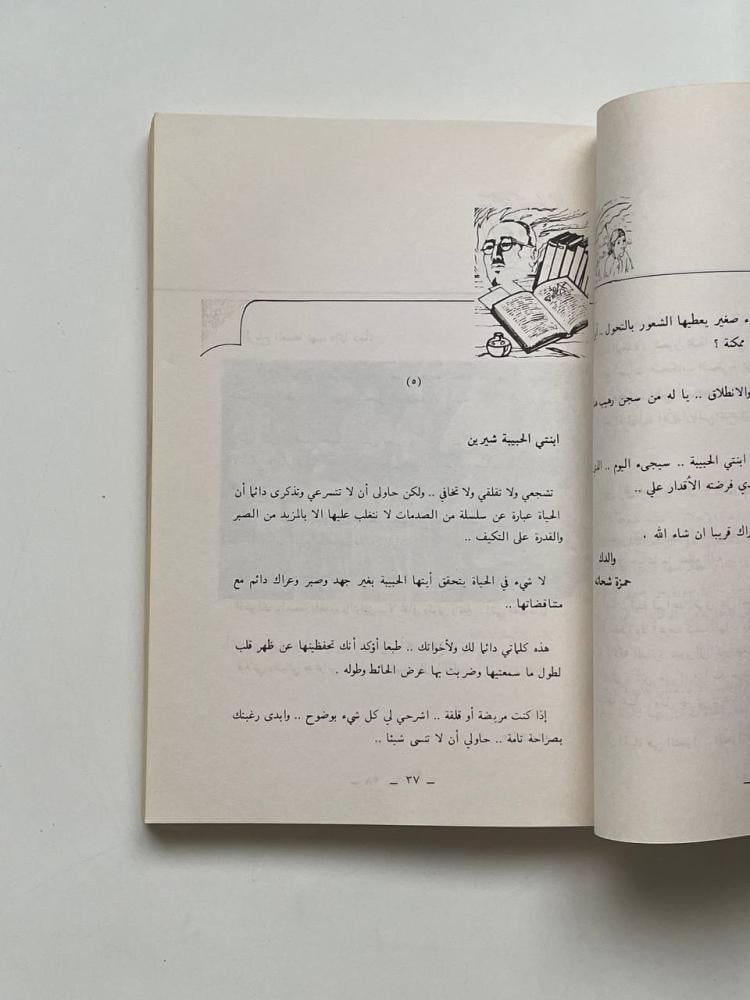 ـاء صغير يعطيها الشعور بالتحول ..
ممكنة ؟
والانطلاق .. يا له من سجن رهيب
ابنتي الحبيبة .. سيجىء اليوم ..
فرضته الأقدار علي ..
قريبا ان شاء الله .
والدك
حمزة شحاته
(٥)
ابنتي الحبيبة شيرين
تشجعي ولا تقلقي ولا تخافي .. ولكن حاولى أن لا تتسرعي وتذكرى دائما أن
الحياة عبارة عن سلسلة من الصدمات لا نتغلب عليها الا بالمزيد من الصبر
والقدرة على التكيف ..
لا شيء في الحياة يتحقق أيتها الحبيبة بغير جهد وصبر وعراك دائم مع
متناقضاتها ..
هذه كلماتي دائما لك ولأخواتك .. طبعا أؤكد أنك تحفظينها عن ظهر قلب
لطول ما سمعتيها وضربت بها عرض الحائط وطوله .
إذا كنت مريضة أو قلقة .. اشرحي لي كل شيء بوضوح .. وابدى رغبتك
بصراحة تامة .. حاولي أن لا تنسى شيئا ..
ــ ٣٧ ــ